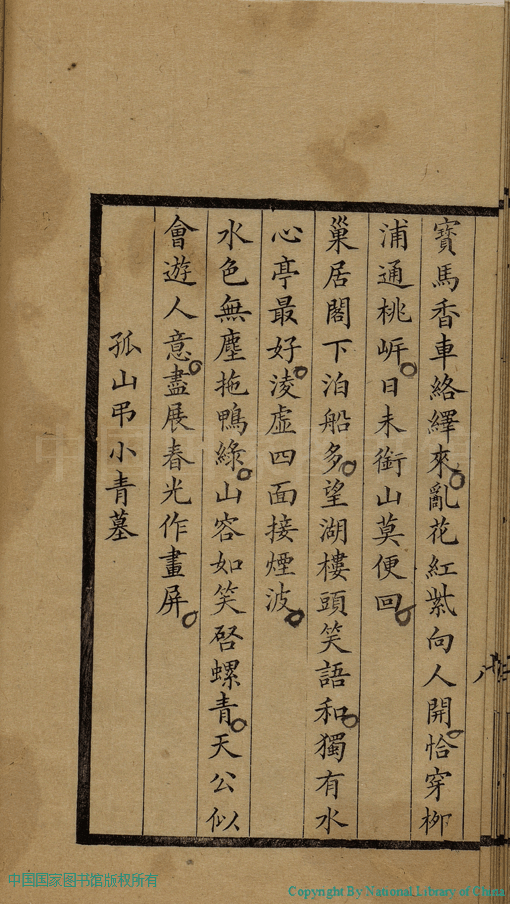 寶馬香車絡繹來亂花紅紫向人開恰穿柳
浦通桃㟁日未銜山莫便回
巢居閣下泊船多望湖樓頭笑語和獨有水
心亭最好淩虛四面接煙波
水色無塵拖鴨綠山容如笑啓螺青天公似
會遊人意盡展春光作畫屏
孤山弔小青墓
中国国家图书馆版权所有
Copyright By National Library of China